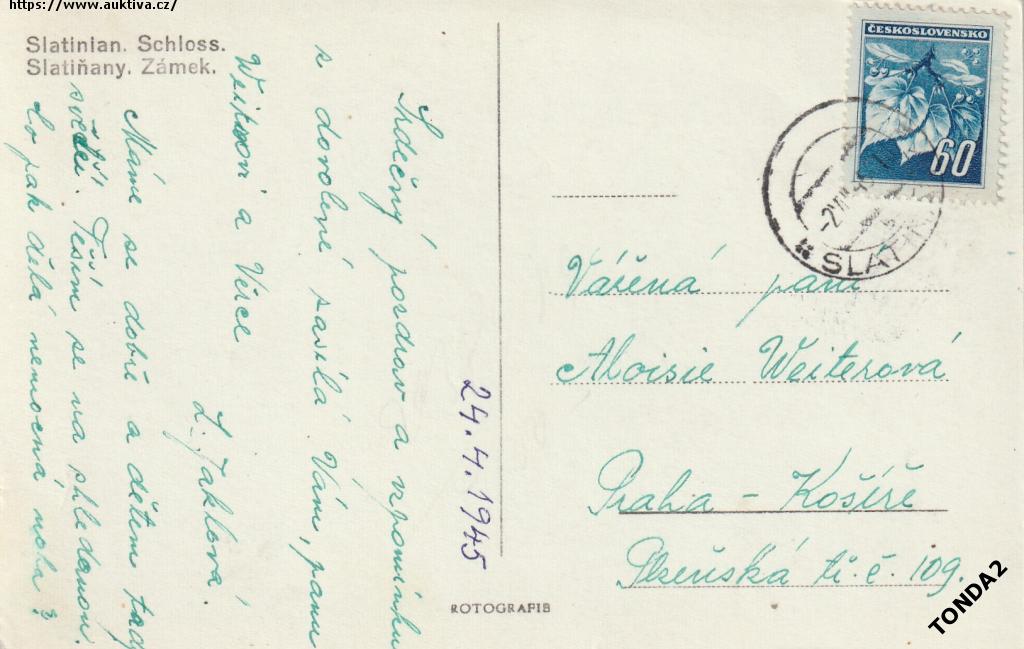 https://www.auktiva.cz/
Slatinian. Schloss.
Slatiňany. Zámek.
Srdečný pozdrav a vzpomínku
z dovolené zasílá Vám, panu
a Věrce
L. Jaklová
Máme se dobře a dětem tady
svědčí. Těším se na shledanou.
Co pak dělá nemocná noha?
24.4.1945
ROTOGRAFIE
ČESKOSLOVENSKO
60
SLATIŇ
Vážená paní
Aloisie Weiterová
Praha - Košíře
Plzeňská tř. č. 109.
TONDA2